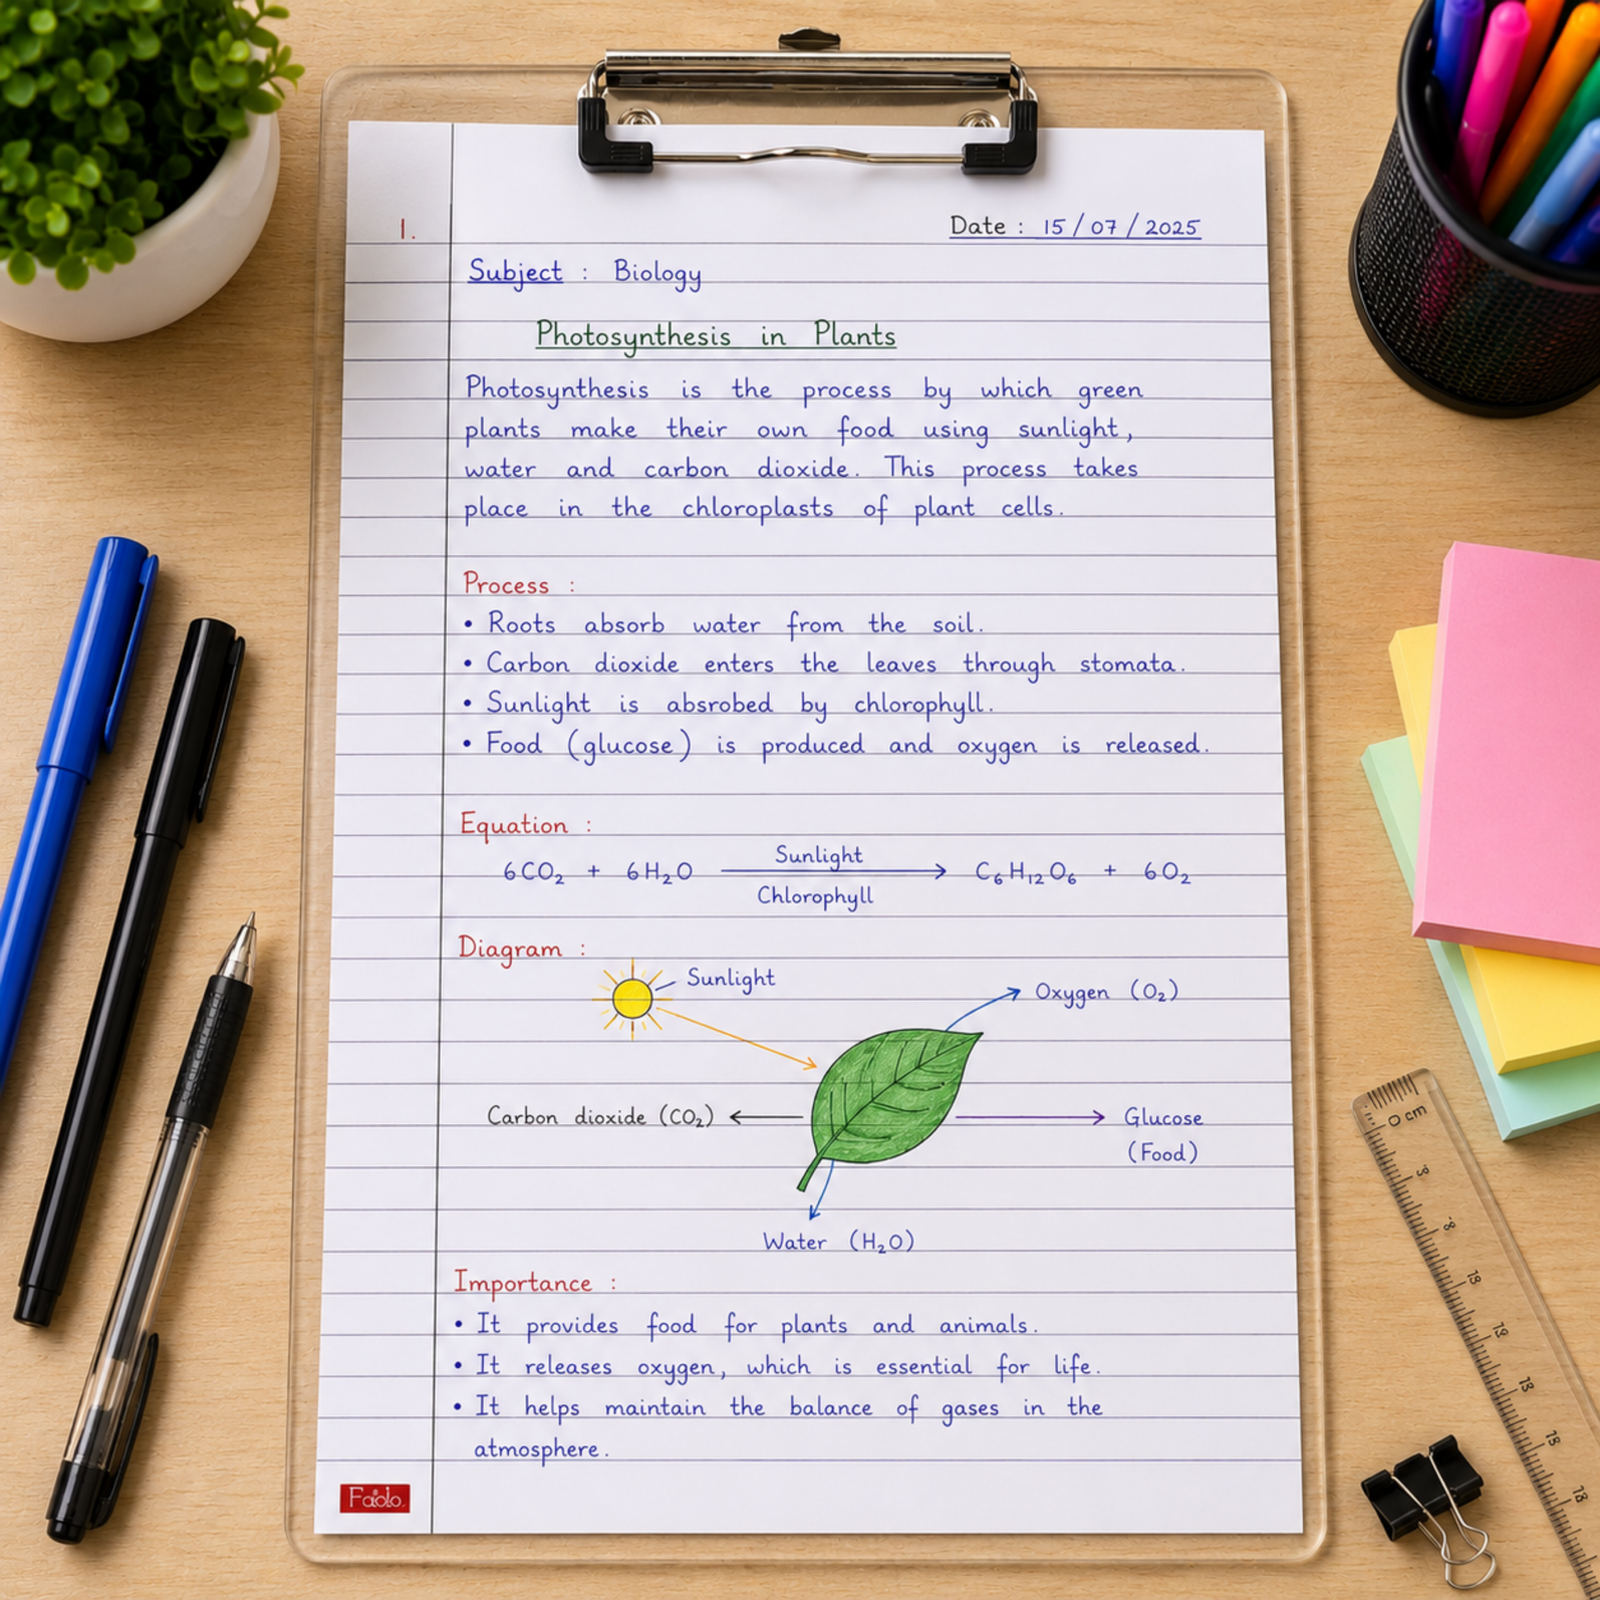 1.
Date : 15 / 07 / 2025
Subject : Biology
Photosynthesis in Plants
Photosynthesis is the process by which green
plants make their own food using sunlight,
water and carbon dioxide. This process takes
place in the chloroplasts of plant cells.
Process :
• Roots absorb water from the soil.
• Carbon dioxide enters the leaves through stomata.
• Sunlight is absrobed by chlorophyll.
• Food (glucose) is produced and oxygen is released.
Equation :
Sunlight
6CO₂ + 6H₂O ⟶ C₆H₁₂O₆ + 6O₂
Chlorophyll
Diagram :
Sunlight
Oxygen (O₂)
Carbon dioxide (CO₂)
Glucose
(Food)
Water (H₂O)
Importance :
• It provides food for plants and animals.
• It releases oxygen, which is essential for life.
• It helps maintain the balance of gases in the
atmosphere.
0 cm